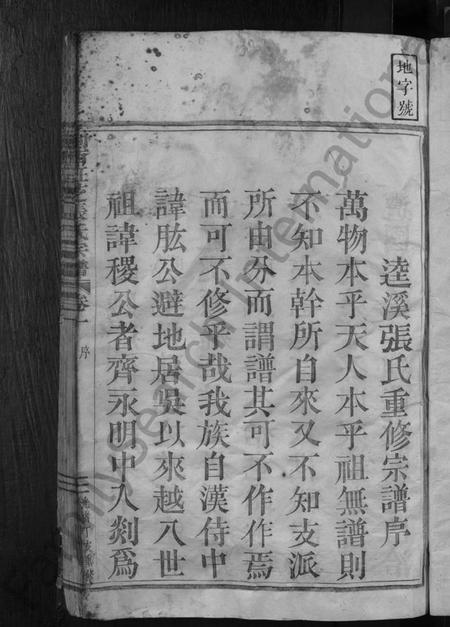 地字號
逵溪張氏重修宗譜序
萬物本乎天人本乎祖無譜則
不知本幹所自來又不知支派
所由分而謂譜其可不作作焉
而可不修乎哉我族自漢侍中
諱肱公避地居吳以來越八世
祖諱稷公者齊永明中入剡為
張氏宗譜
卷一
序
FamilySearch International